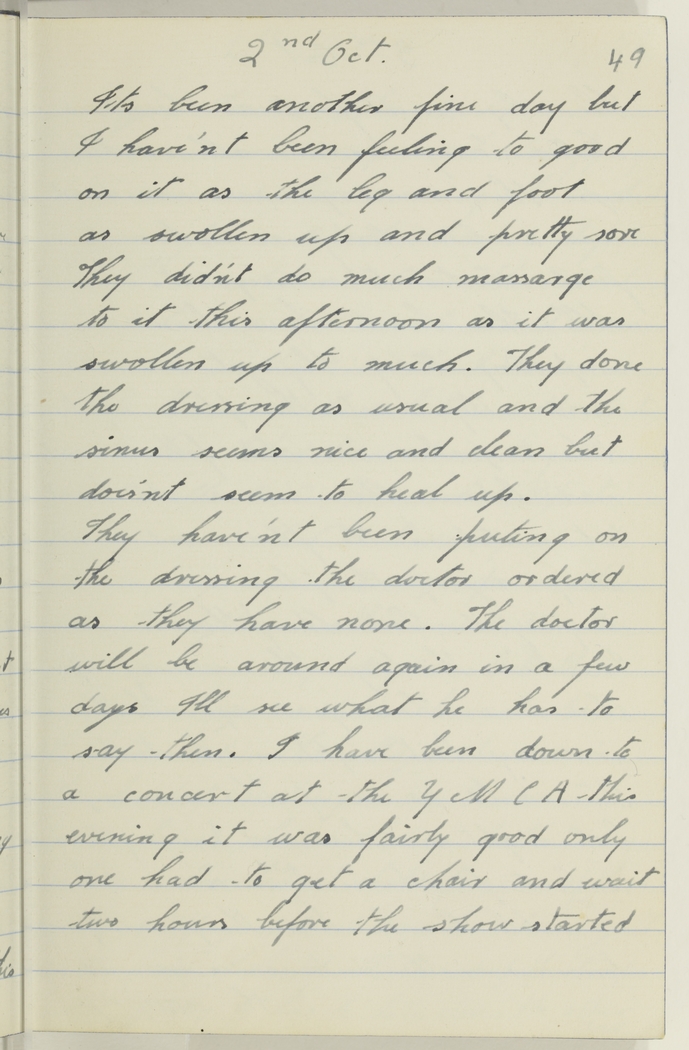 2nd Oct.
49
Its been another fine day but
I have'nt been feeling to good
on it as the leg and foot
as swollen up and pretty sore
They didn't do much massarge
to it this afternoon as it was
swollen up to much. They done
the dressing as usual and the
sinus seems nice and clean but
does'nt seem to heal up.
They have'nt been puting on
the dressing the doctor ordered
as they have none. The doctor
will be around again in a few
days Ill see what he has to
say then. I have been down to
a concert at the Y M C A this
evening it was fairly good only
one had to get a chair and wait
two hours before the show started